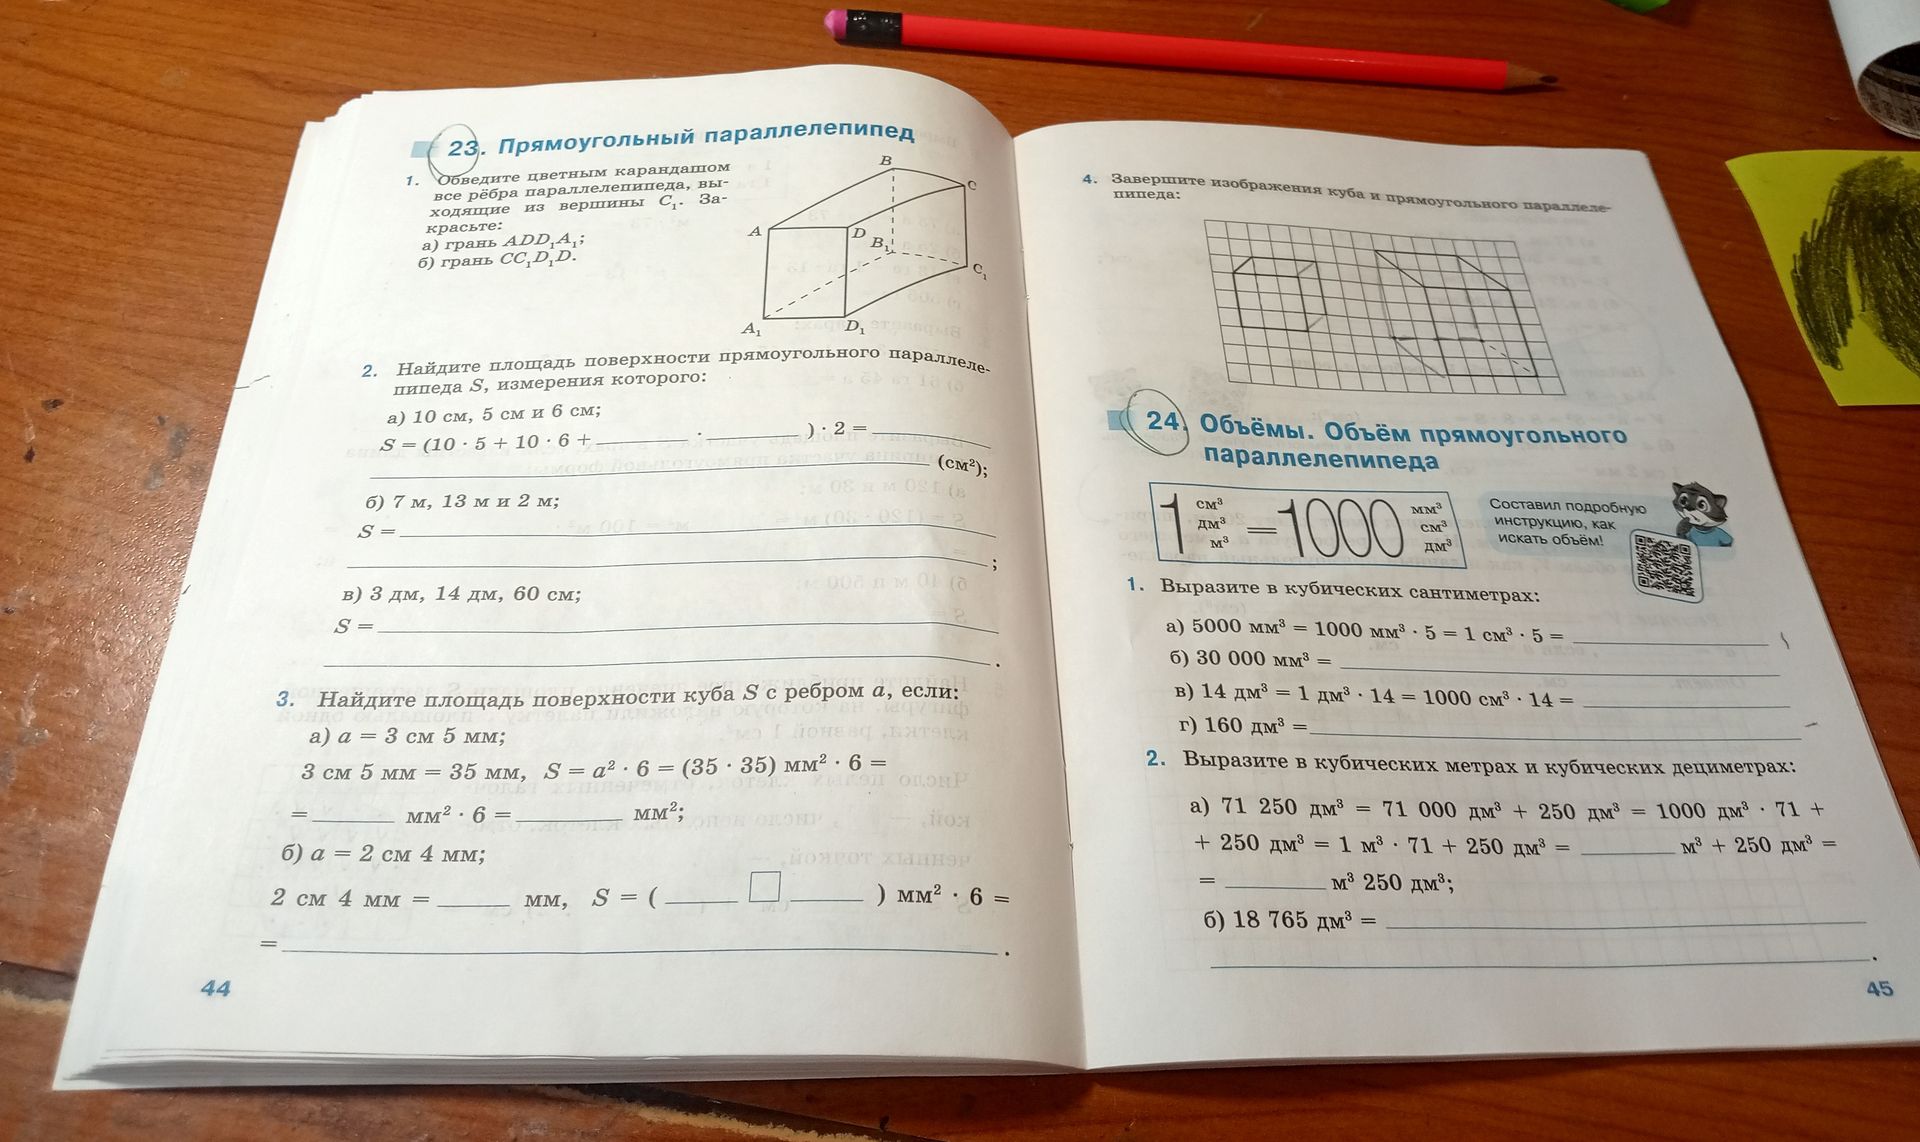 23. Прямоугольный параллелепипед
1. Обведите цветным карандашом
все рёбра параллелепипеда, вы-
ходящие из вершины C₁. За-
красьте:
а) грань ADD₁A₁;
б) грань CC₁D₁D.
B
C
A
D
B₁
C₁
A₁
D₁
2. Найдите площадь поверхности прямоугольного параллеле-
пипеда S, измерения которого:
а) 10 см, 5 см и 6 см;
S = (10 · 5 + 10 · 6 + ______ · ______ ) · 2 = ______
______ (см²);
б) 7 м, 13 м и 2 м;
S = ______
______ ;
в) 3 дм, 14 дм, 60 см;
S = ______
______ .
3. Найдите площадь поверхности куба S с ребром a, если:
а) a = 3 см 5 мм;
3 см 5 мм = 35 мм, S = a² · 6 = (35 · 35) мм² · 6 =
= ______ мм² · 6 = ______ мм²;
б) a = 2 см 4 мм;
2 см 4 мм = ______ мм, S = ( ______ □ ______ ) мм² · 6 =
= ______ .
44
4. Завершите изображения куба и прямоугольного параллеле-
пипеда:
24. Объёмы. Объём прямоугольного
параллелепипеда
1 см³ дм³ м³ = 1000 мм³ см³ дм³
Составил подробную
инструкцию, как
искать объём!
1. Выразите в кубических сантиметрах:
а) 5000 мм³ = 1000 мм³ · 5 = 1 см³ · 5 = ______
б) 30 000 мм³ = ______
в) 14 дм³ = 1 дм³ · 14 = 1000 см³ · 14 = ______
г) 160 дм³ = ______
2. Выразите в кубических метрах и кубических дециметрах:
а) 71 250 дм³ = 71 000 дм³ + 250 дм³ = 1000 дм³ · 71 +
+ 250 дм³ = 1 м³ · 71 + 250 дм³ = ______ м³ + 250 дм³ =
= ______ м³ 250 дм³;
б) 18 765 дм³ = ______
______ .
45